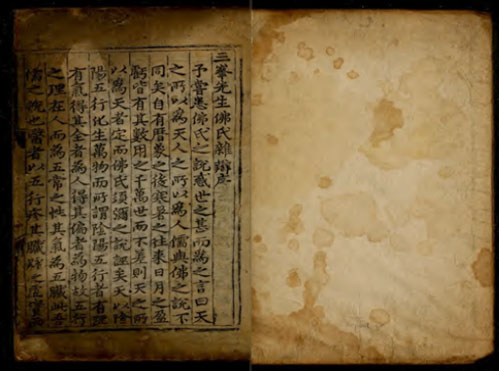 三峯先生佛氏雜辨序
予嘗患佛氏之說惑世之甚而爲之言曰天
之所以爲天人之所以爲人儒與佛之說不
同矣自有曆象之後寒暑之往來日月之盈
虧皆有其數用之千萬世而不差則天之所
以爲天者定而佛氏須彌之說誣矣天以陰
陽五行化生萬物而所謂陰陽五行者有理
有氣得其全者爲人得其偏者爲物故五行
之理在人而爲五常之性其氣爲五臟此吾
儒之說也醫者以五行診其臟脉之虛實而